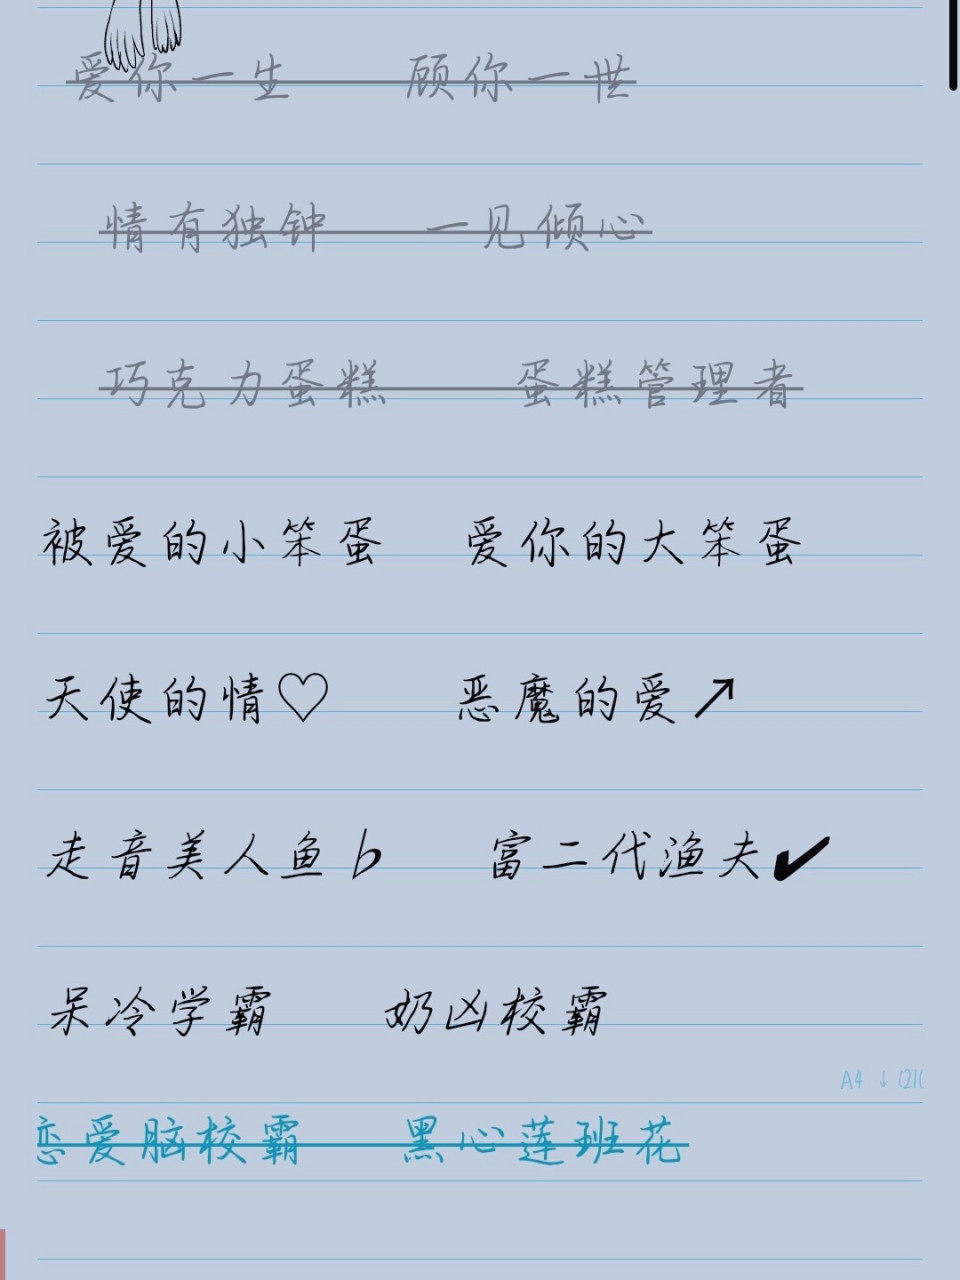 爱你一生 顾你一世
情有独钟 一见倾心
巧克力蛋糕 蛋糕管理者
被爱的小笨蛋 爱你的大笨蛋
天使的情♡ 恶魔的爱↗
走音美人鱼♭ 富二代渔夫✔
呆冷学霸 奶凶校霸
A4 ↓ (21(
恋爱脑校霸 黑心莲班花